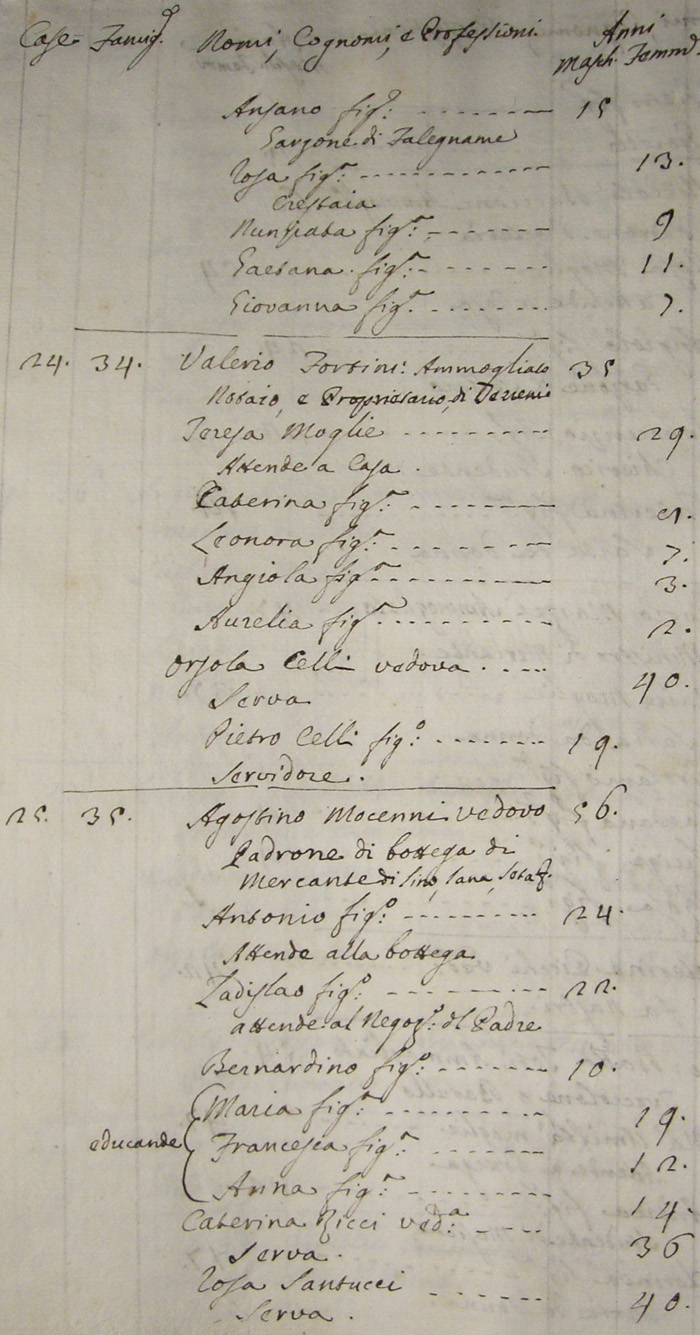 Case Famig.e Nomi, Cognomi, e Professioni Anni
Masch. Femm.
Ansano fig.o 15
Garzone di Falegname
Rosa fig.a 13.
Crestaia
Nunziata fig.a 9
Gaetana fig.a 11.
Giovanna fig.a 7.
24. 34. Valerio Fortini: Ammogliato 35
Notaio, e Proprietario di Terreni
Teresa Moglie 29.
Attende a Casa.
Caterina fig.a
Leonora fig.a 7.
Angiola fig.a 3.
Aurelia fig.a 2.
Orsola Celli vedova 40.
Serva
Pietro Celli fig.o 19.
Servidore.
25. 35. Agostino Mocenni vedovo 56.
Padrone di bottega di
Mercante di lino, lana, seta
Antonio fig.o 24.
Attende alla bottega
Ladislao fig.o 22.
attende al Negoz.o dl Padre
Bernardino fig.o 10.
Maria fig.a 19.
educande Francesca fig.a 12.
Anna fig.a 14.
Caterina Ricci ved.a 36
Serva.
Rosa Santucci 40.
Serva.